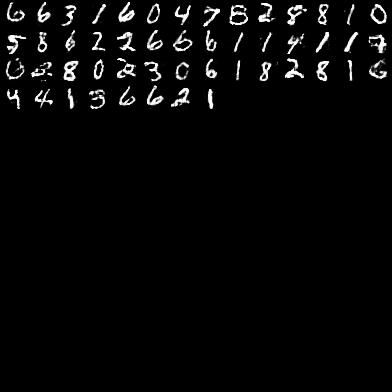 6 6 3 1 6 0 4 7 8 2 8 8 1 0
5 8 6 2 2 6 6 6 1 1 4 1 1 7
0 2 8 0 2 3 0 6 1 8 2 8 1 6
4 4 1 3 6 6 2 1